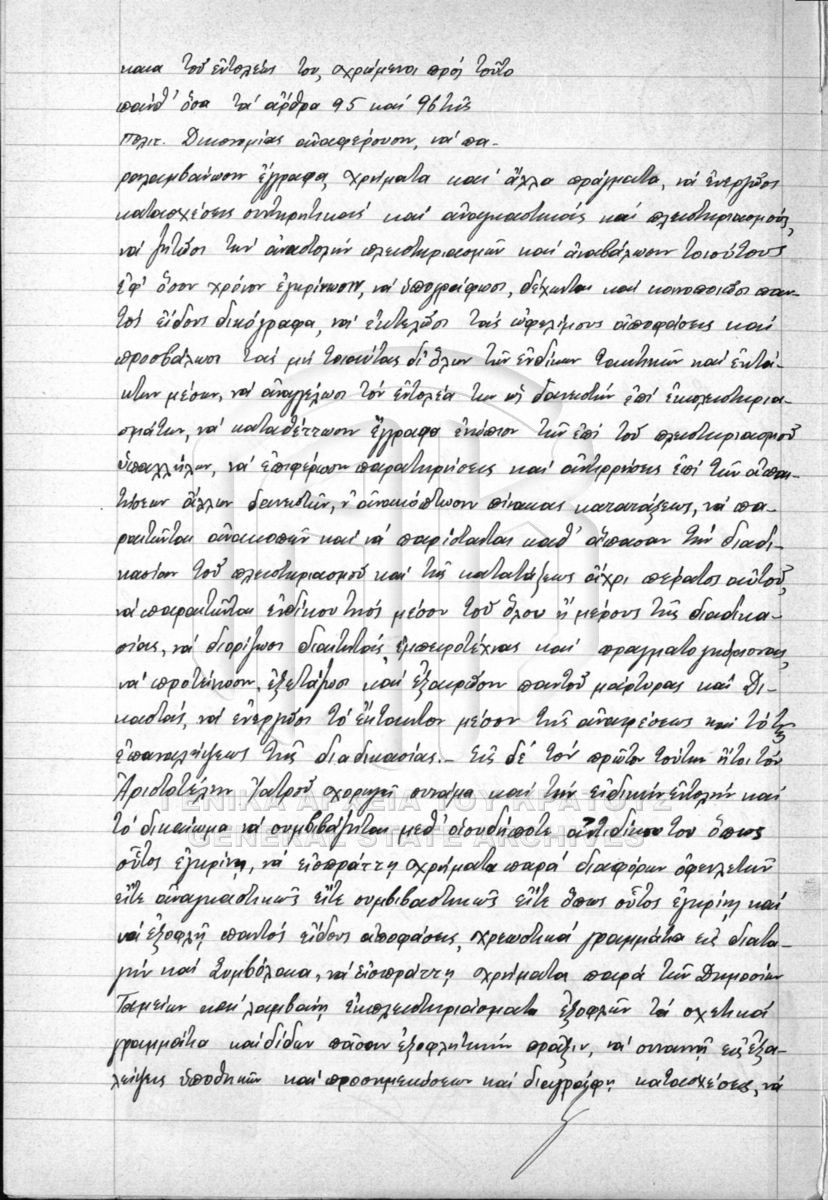 κατα τοῦ ἐντολέως του, χρώμενοι πρός τοῦτο
πάνθ' ὅσα τά ἄρθρα 95 καί 96 τῆς
Πολιτ. Δικονομίας ἀναφέρουσι, νά πα-
ραλαμβάνωσιν ἔγγραφα, χρήματα καί ἄλλα πράγματα, νά ἐνεργῶσι
κατασχέσεις συντηρητικάς καί ἀναγκαστικάς καί πλειστηριασμούς,
νά ζητῶσι τήν ἀναστολήν πλειστηριασμῶν καί ἀναβάλωσιν τοιούτους
ἐφ' ὅσον χρόνον ἐγκρίνωσιν, νά ὑπογράφωσι, δέχωνται καί κοινοποιῶσι παν-
τός εἴδους δικόγραφα, νά ἐκτελῶσι τάς ὠφελίμους ἀποφάσεις καί
προσβάλωσι τάς μή τοιαύτας δι' ὅλων τῶν ἐνδίκων τακτικῶν καί ἐκτά-
κτων μέσων, νά ἀναγγέλωσι τόν ἐντολέα των ὡς δανειστήν ἐπί ἐκπλειστηρια-
σμάτων, νά καταθέττωσιν ἔγγραφα ἐνώπιον τῶν ἐπί τοῦ πλειστηριασμοῦ
ὑπαλλήλων, νά ἐπιφέρωσι παρατηρήσεις καί ἀντιρρήσεις ἐπί τῶν ἀπαι-
τήσεων ἄλλων δανειστῶν, ν' ἀνακόπτωσιν πίνακας κατατάξεως, νά πα-
ραιτῶνται ἀνακοπῶν καί νά παρίστανται καθ' ἅπασαν τήν διαδι-
κασίαν τοῦ πλειστηριασμοῦ καί τῆς κατατάξεως ἄχρι πέρατος αὐτοῦ,
νά παραιτῶνται ἐνδίκου τινός μέσου τοῦ ὅλου ἤ μέρους τῆς διαδικα-
σίας, νά διορίζωσι διαιτητάς ἐμπειροτέχνας καί πραγματογνώμονας,
νά προτείνωσιν, ἐξετάζωσι καί ἐξαιρῶσιν παντοῦ μάρτυρας καί Δι-
καστάς, νά ἐνεργῶσι τό ἔκτακτον μέσον τῆς ἀναιρέσεως καί τό τῆς
ἐπαναλήψεως τῆς διαδικασίας.- Εἰς δέ τόν πρῶτον τούτων ἤτοι τόν
Ἀριστοτέλην Ἰατροῦ χορηγεῖ συνάμα καί τήν εἰδικήν ἐντολήν καί
τό δικαίωμα νά συμβιβάζηται μεθ' οἱουδήποτε ἀντιδίκου του ὅπως
οὗτος ἐγκρίνῃ, νά εἰσπράττῃ χρήματα παρά διαφόρων ὀφειλετῶν
εἴτε ἀναγκαστικῶς εἴτε συμβιβαστικῶς εἴτε ὅπως οὗτος ἐγκρίνῃ καί
νά ἐξοφλῇ παντός εἴδους ἀποφάσεις, χρεωστικά γραμμάτια εἰς διατα-
γήν καί Συμβόλαια, νά εἰσπράττῃ χρήματα παρά τῶν Δημοσίων
Ταμείων καί λαμβάνῃ ἐκπλειστηριάσματα ἐξοφλῶν τά σχετικά
γραμμάτια καί δίδων πᾶσαν ἐξοφλητικήν πρᾶξιν, νά συναινῇ εἰς ἐξα-
λείψεις ὑποθηκῶν καί προσημειώσεων καί διαγράφῃ κατασχέσεις, νά
ΓΕΝΙΚΑ ΑΡΧΕΙΑ ΤΟΥ ΚΡΑΤΟΥΣ
GENERAL STATE ARCHIVES